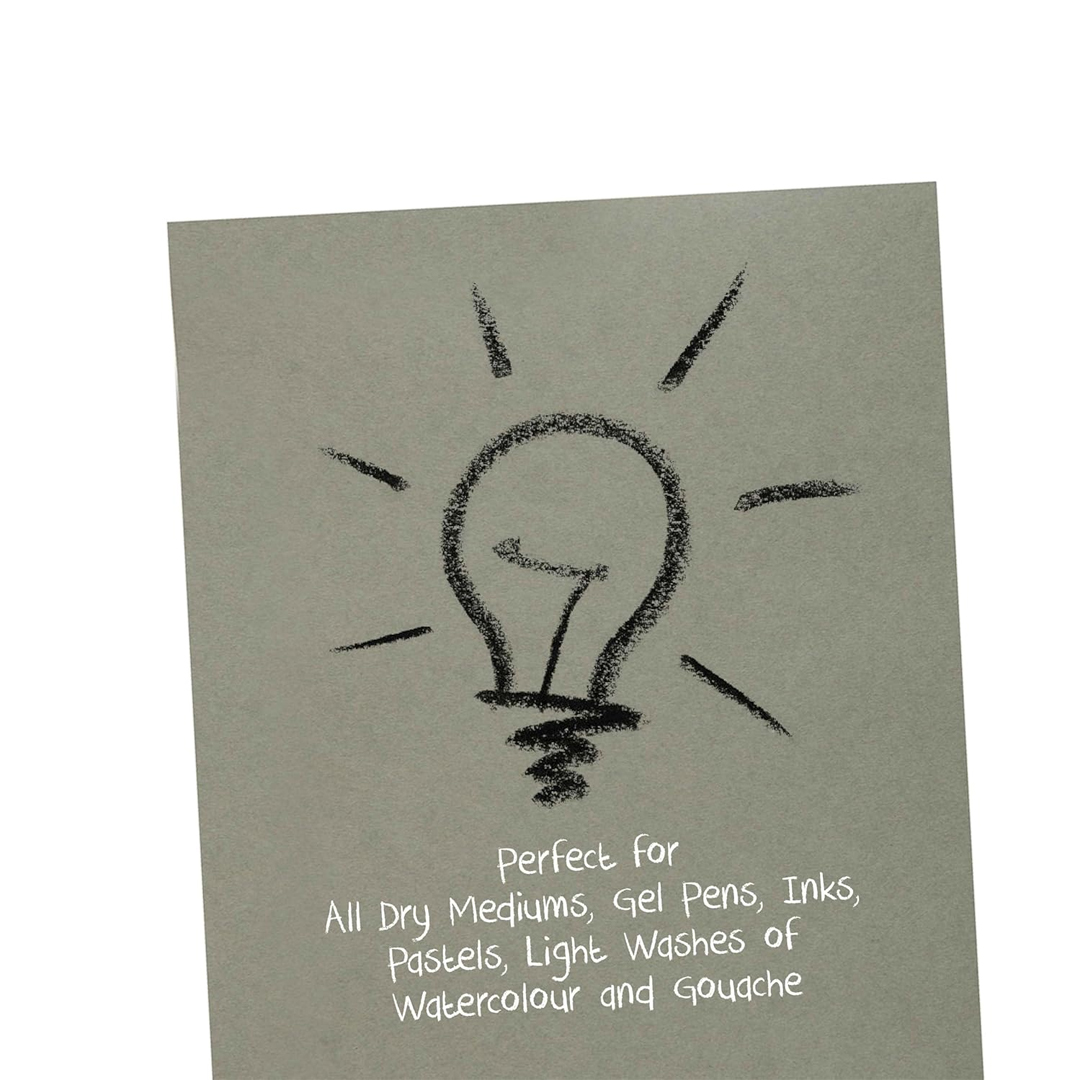 Perfect for
All Dry Mediums, Gel Pens, Inks,
Pastels, Light Washes of
Watercolour and Gouache